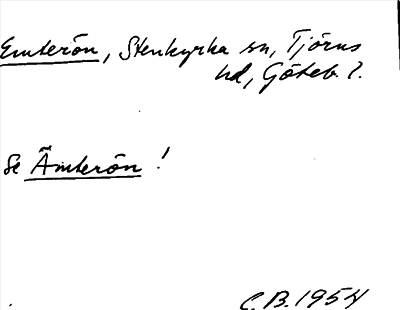 Emterön, Stenkyrka sn, Tjörns
hd, Göteb. l.
Se Ämterön !
C.B. 1954